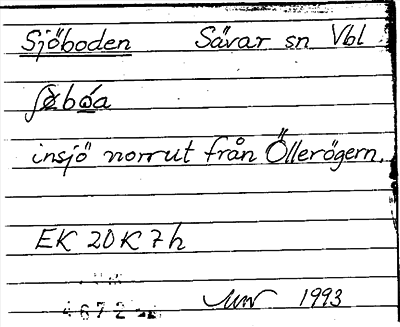 Sjöboden Sävar sn Vbl
insjö norrut från Öllerögern.
EK 20K7h
4672
1993